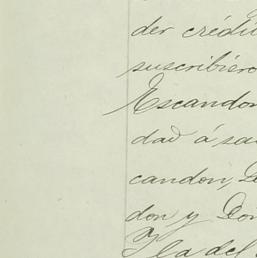 der crédi
suscribiero
Escandon
dad á sa
candon, D
don y Don
Y la del